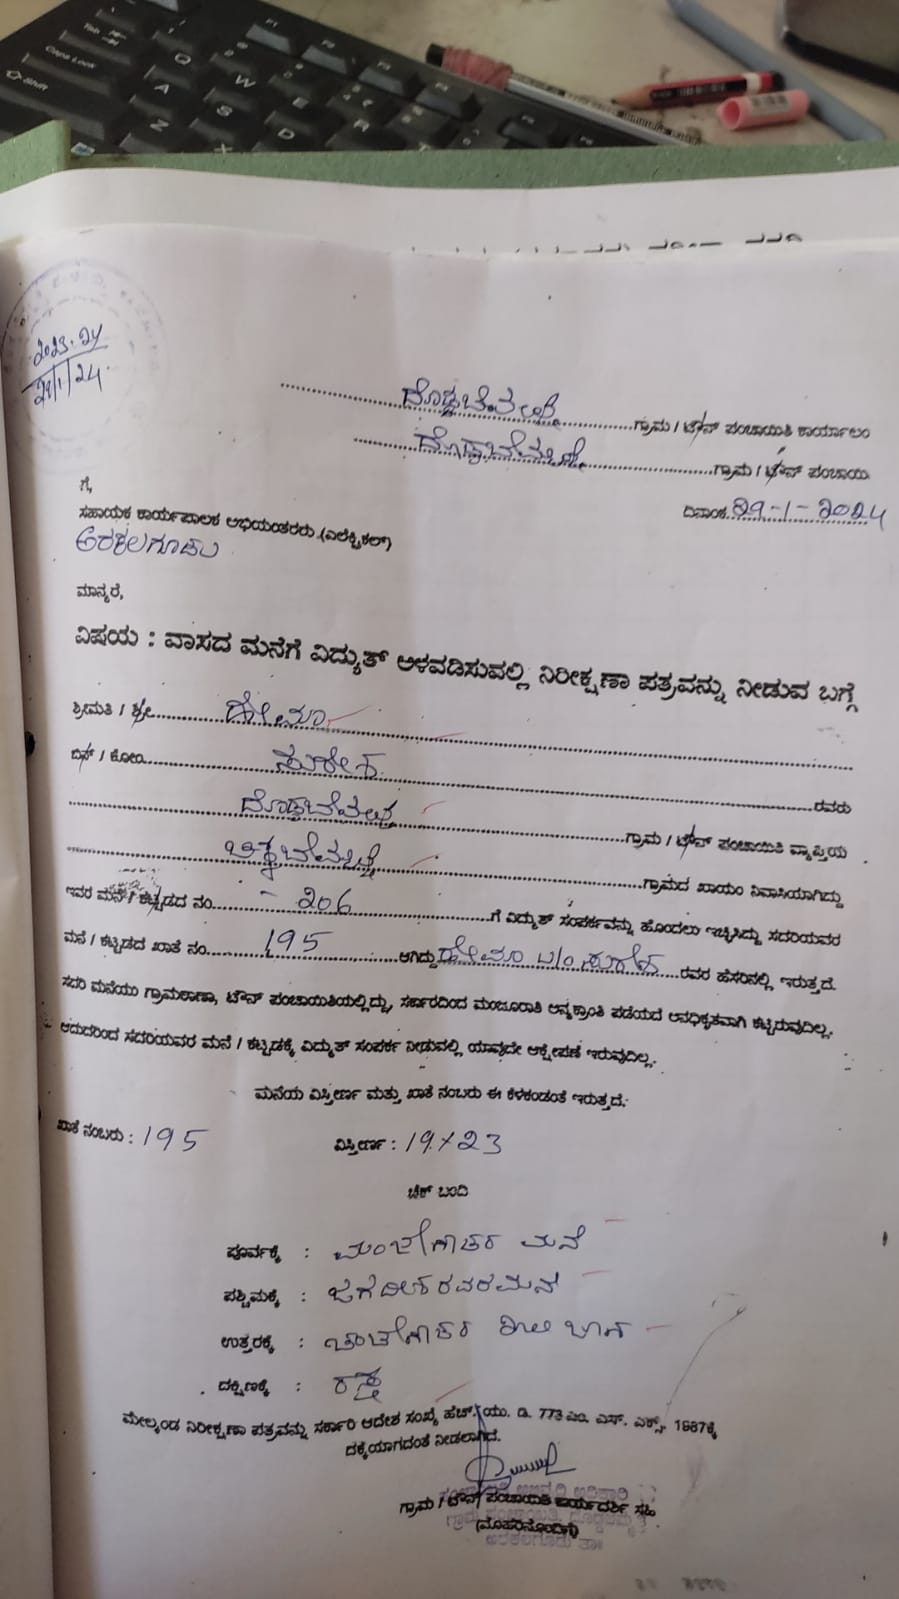 2023-24
29/1/24
ದೊಡ್ಡಬೆಮ್ಮತ್ತಿ ಗ್ರಾಮ / ಟೌನ್ ಪಂಚಾಯಿತಿ ಕಾರ್ಯಾಲಂ
ಗ್ರಾಮ / ಟೌನ್ ಪಂಚಾಯಿ
ದಿನಾಂಕ 29-1-2024
ಗೆ,
ಸಹಾಯಕ ಕಾರ್ಯಪಾಲಕ ಅಭಿಯಂತರರು (ಎಲೆಕ್ಟ್ರಿಕಲ್)
ಅರಕಲಗೂಡು
ಮಾನ್ಯರೆ,
ವಿಷಯ : ವಾಸದ ಮನೆಗೆ ವಿದ್ಯುತ್ ಅಳವಡಿಸುವಲ್ಲಿ ನಿರೀಕ್ಷಣಾ ಪತ್ರವನ್ನು ನೀಡುವ ಬಗ್ಗೆ
ಶ್ರೀಮತಿ / ಶ್ರೀ ಹೇಮಾ
ಬಿನ್ / ಕೋಂ ಸುರೇಶ ರವರು
ಗ್ರಾಮ / ಟೌನ್ ಪಂಚಾಯಿತಿ ವ್ಯಾಪ್ತಿಯ
ಗ್ರಾಮದ ಖಾಯಂ ನಿವಾಸಿಯಾಗಿದ್ದು
ಇವರ ಮನೆ / ಕಟ್ಟಡದ ನಂ - 206 ಗೆ ವಿದ್ಯುತ್ ಸಂಪರ್ಕವನ್ನು ಹೊಂದಲು ಇಚ್ಛಿಸಿದ್ದು ಸದರಿಯವರ
ಮನೆ / ಕಟ್ಟಡದ ಖಾತೆ ನಂ. 195 ಆಗಿದ್ದು ಹೇಮಾ w/o ಸುರೇಶ ರವರ ಹೆಸರಿನಲ್ಲಿ ಇರುತ್ತದೆ.
ಸದರಿ ಮನೆಯು ಗ್ರಾಮಠಾಣಾ, ಟೌನ್ ಪಂಚಾಯಿತಿಯಲ್ಲಿದ್ದು, ಸರ್ಕಾರದಿಂದ ಮಂಜೂರಾತಿ ಅನ್ಯಕ್ರಾಂತಿ ಪಡೆಯದೆ ಅನಧಿಕೃತವಾಗಿ ಕಟ್ಟಿರುವುದಿಲ್ಲ.
ಆದುದರಿಂದ ಸದರಿಯವರ ಮನೆ / ಕಟ್ಟಡಕ್ಕೆ ವಿದ್ಯುತ್ ಸಂಪರ್ಕ ನೀಡುವಲ್ಲಿ ಯಾವುದೇ ಆಕ್ಷೇಪಣೆ ಇರುವುದಿಲ್ಲ.
ಮನೆಯ ವಿಸ್ತೀರ್ಣ ಮತ್ತು ಖಾತೆ ನಂಬರು ಈ ಕೆಳಕಂಡಂತೆ ಇರುತ್ತದೆ.
ಖಾತೆ ನಂಬರು : 195 ವಿಸ್ತೀರ್ಣ : 19×23
ಚೆಕ್ ಬಂದಿ
ಪೂರ್ವಕ್ಕೆ : ಮನೆ
ಪಶ್ಚಿಮಕ್ಕೆ : ಜಗದೀಶರವರಮನೆ
ಉತ್ತರಕ್ಕೆ :
ದಕ್ಷಿಣಕ್ಕೆ : ರಸ್ತೆ
ಮೇಲ್ಕಂಡ ನಿರೀಕ್ಷಣಾ ಪತ್ರವನ್ನು ಸರ್ಕಾರಿ ಆದೇಶ ಸಂಖ್ಯೆ ಹೆಚ್. ಯು. ಡಿ. 773 ಎಂ. ಎನ್. ಎಕ್ಸ್. 1987ಕ್ಕೆ
ದಕ್ಕೆಯಾಗದಂತೆ ನೀಡಲಾಗಿದೆ.
ಗ್ರಾಮ / ಟೌನ್ ಪಂಚಾಯಿತಿ ಕಾರ್ಯದರ್ಶಿ ಸಹಿ
(ಮೊಹರಿನೊಂದಿಗೆ)
ಅರಕಲಗೂಡು ತಾ॥